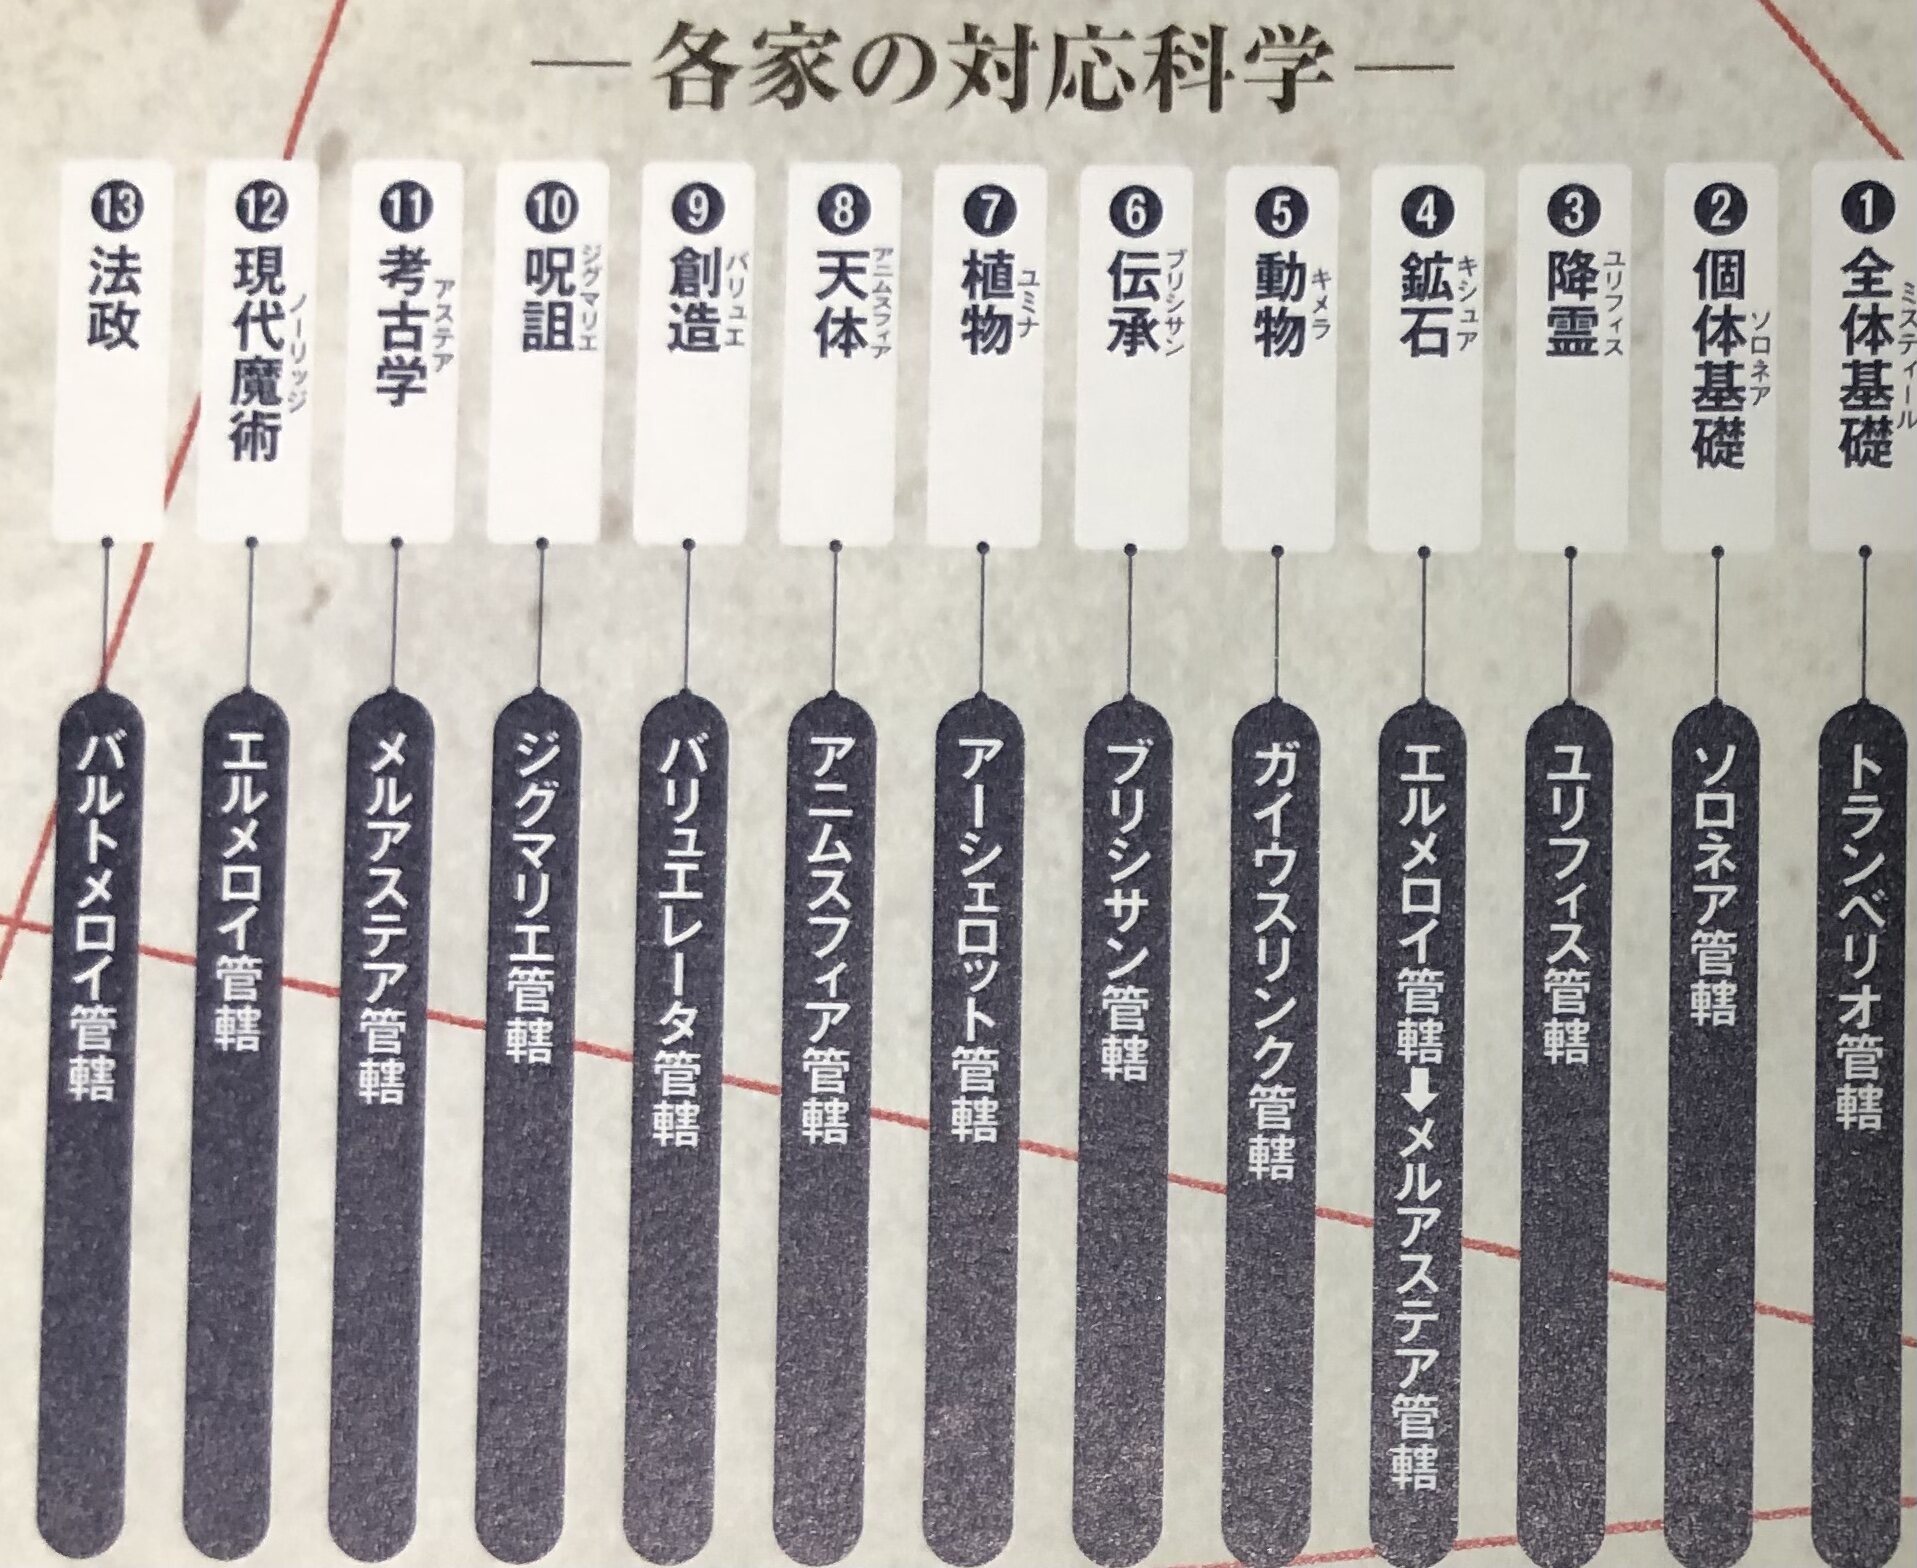 各家の対応科学
❶全体基礎
ミスティール
トランベリオ管轄
❷個体基礎
ソロネア
ソロネア管轄
❸降霊
ユリフィス
ユリフィス管轄
❹鉱石
キシュア
エルメロイ管轄⬇メルアステア管轄
❺動物
キメラ
ガイウスリンク管轄
❻伝承
ブリシサン
ブリシサン管轄
❼植物
ユミナ
アーシェロット管轄
❽天体
アニムスフィア
アニムスフィア管轄
❾創造
バリュエ
バリュエレータ管轄
❿呪詛
ジグマリエ
ジグマリエ管轄
⓫考古学
アステア
メルアステア管轄
⓬現代魔術
ノーリッジ
エルメロイ管轄
⓭法政
バルトメロイ管轄